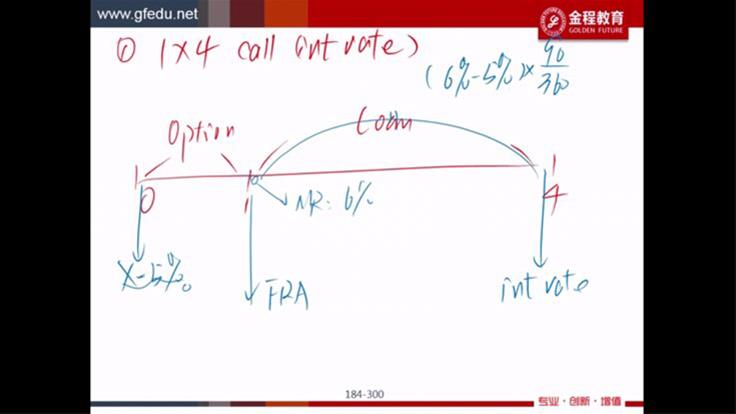 www.gfedu.net
金程教育
GOLDEN FUTURE
① 1×4 call (int rate)
(6%-5%)× 90/360
option
Loan
0
1
4
MR: 6%
X=5%
FRA
int rate
184-300
专业·创新·增值